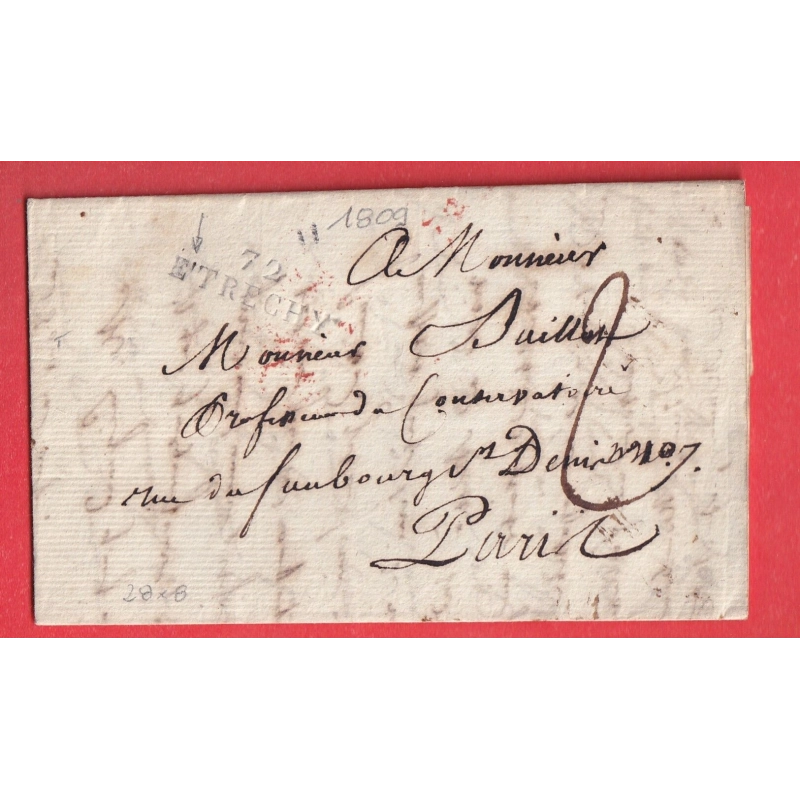 1809
11
72
E'TRECHY
A Monsieur
Monsieur Baillot
Professeur du Conservatoire
rue du faubourg St Denis No 107.
Paris
2
28 x 8